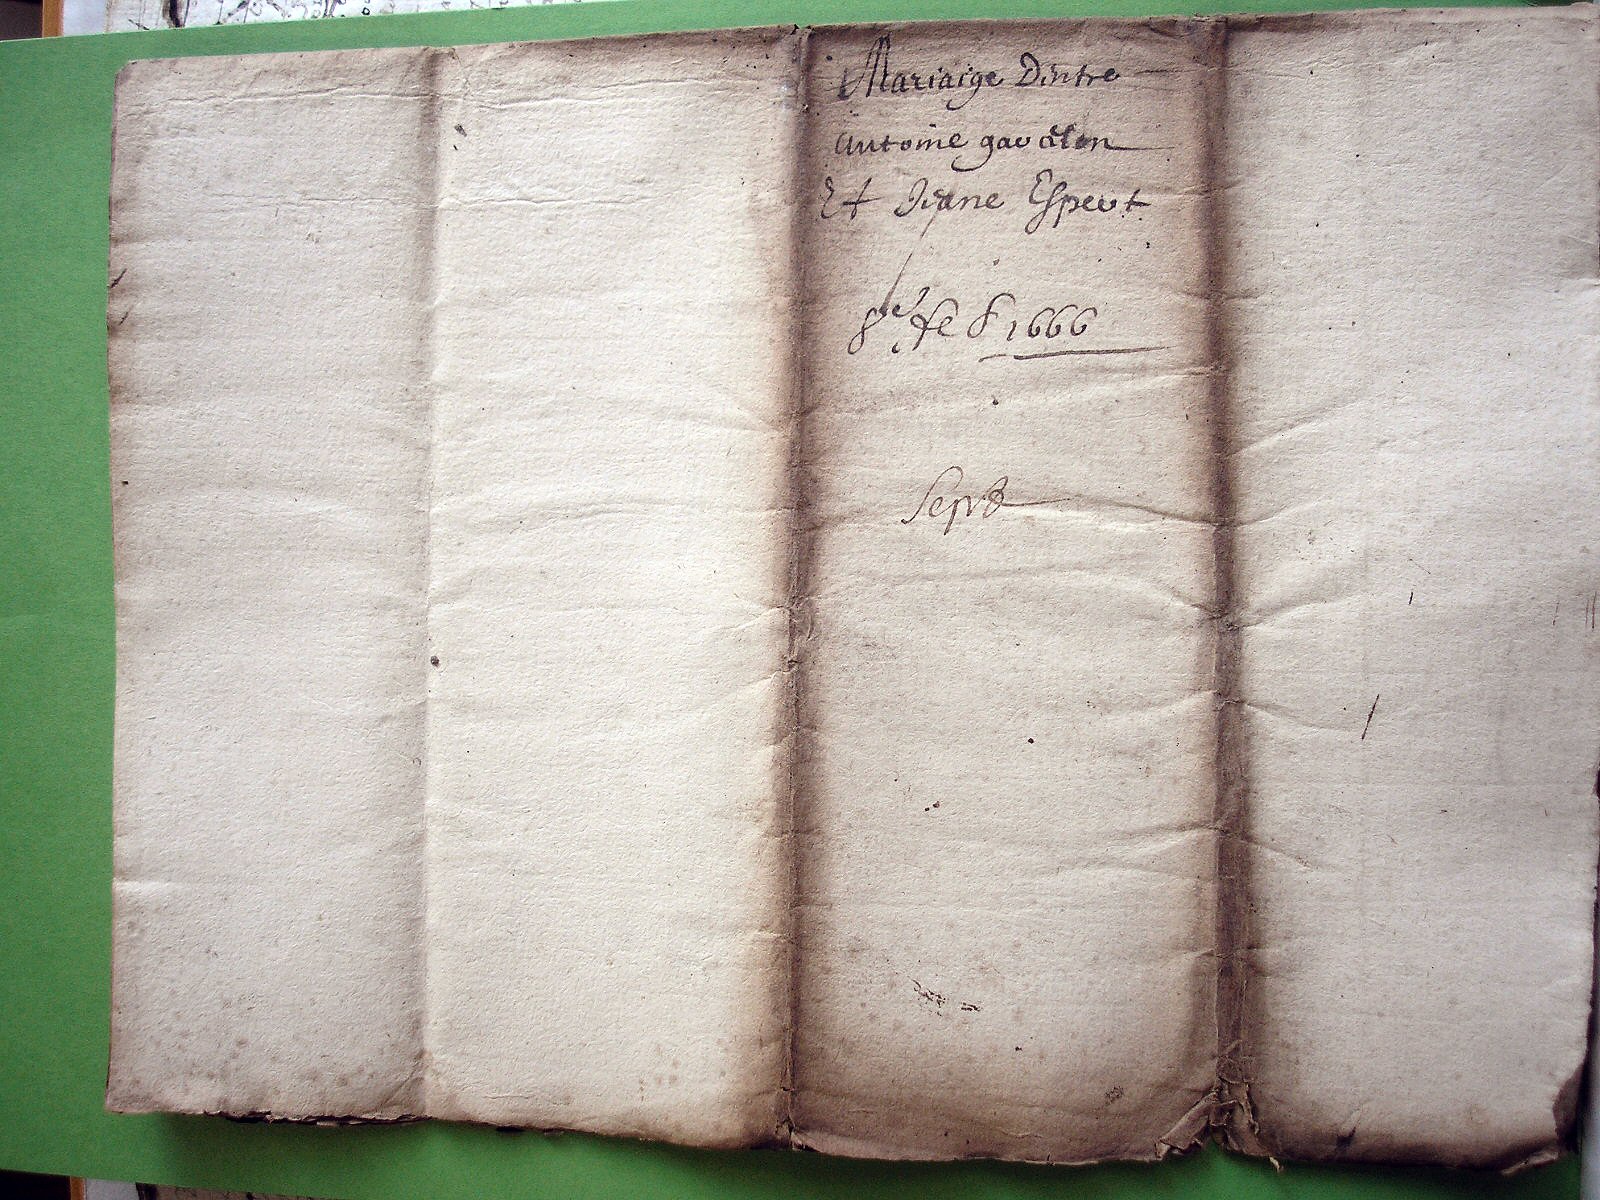 Mariaige Dintre
Antoine gavalon
Et Jeane Espeut
8e 1666
Sept